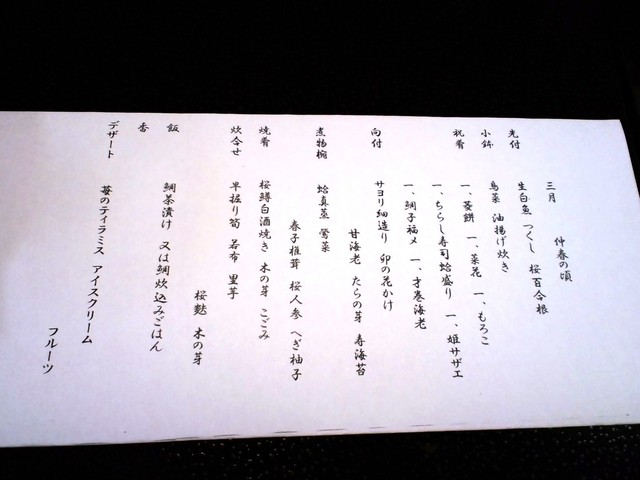 三月 仲春の頃
先付 生白魚 つくし 桜百合根
小鉢 鳥菜 油揚げ炊き
祝肴 一、菱餅 一、菜花 一、もろこ
一、ちらし寿司蛤盛り 一、姫サザエ
一、鯛子福メ 一、才巻海老
向付 サヨリ細造り 卯の花かけ
甘海老 たらの芽 寿海苔
煮物椀 蛤真蒸 鶯菜
春子椎茸 桜人参 へぎ柚子
焼肴 桜鱒白酒焼き 木の芽 こごみ
炊合せ 早掘り筍 若布 里芋
桜麩 木の芽
飯 鯛茶漬け 又は鯛炊込みごはん
香
デザート 苺のティラミス アイスクリーム
フルーツ